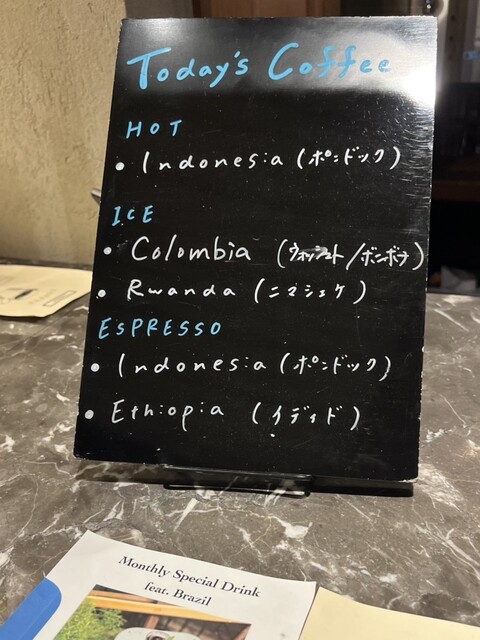 Today's Coffee
HOT
• Indonesia (ポンドック)
ICE
• Colombia (ウォッシュト/ボンボナ)
• Rwanda (ニマシェケ)
ESPRESSO
• Indonesia (ポンドック)
• Ethiopia (イディド)
Monthly Special Drink
feat. Brazil